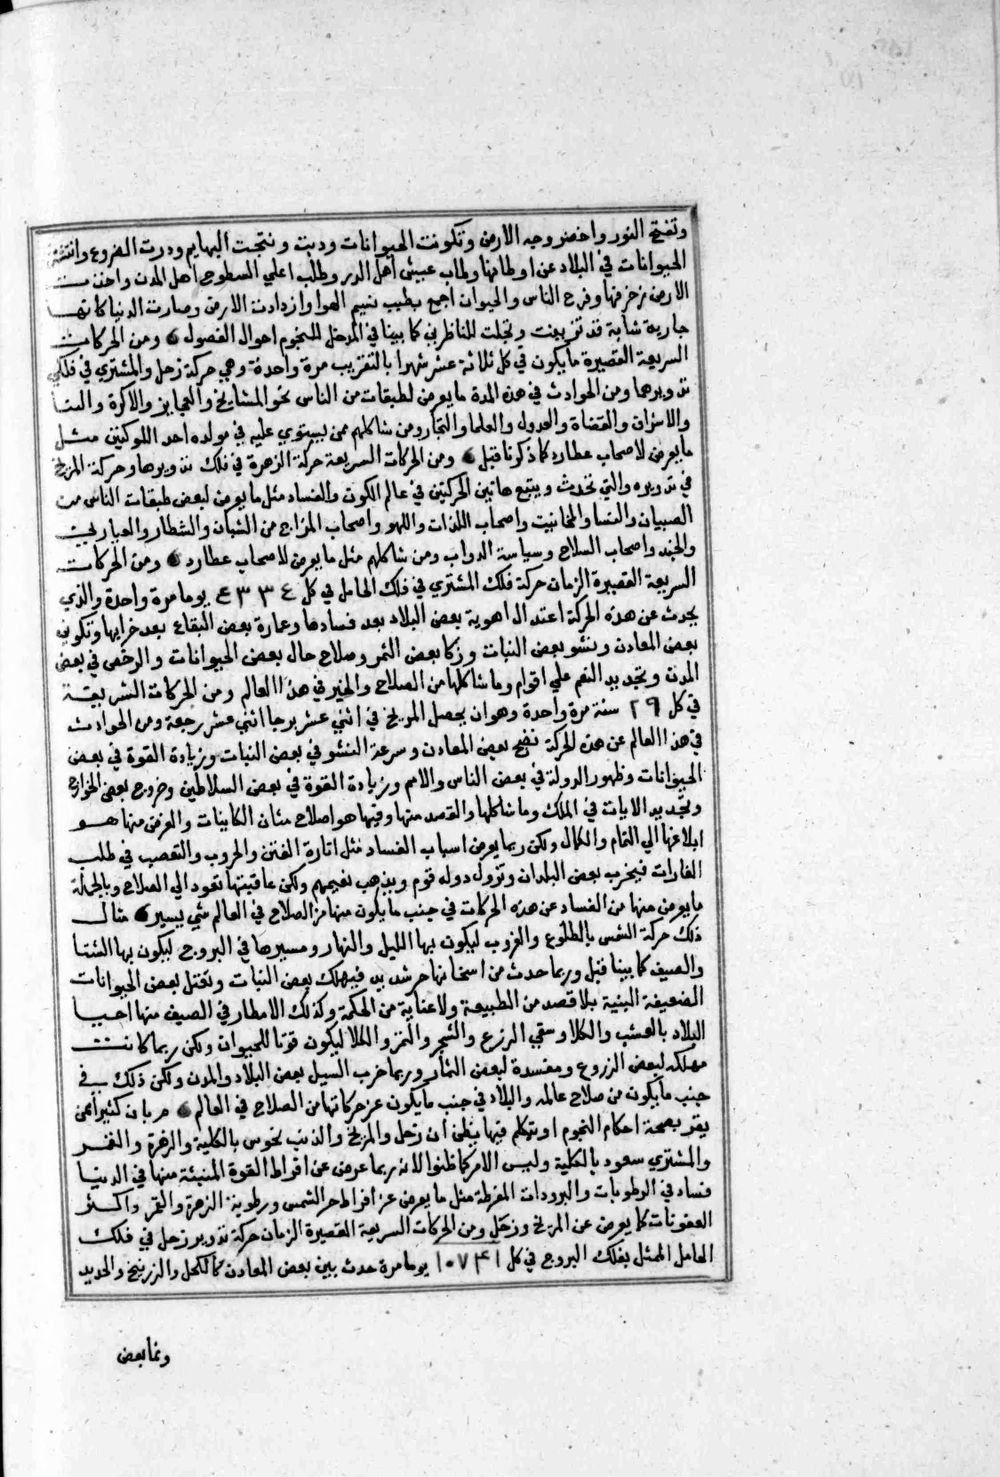 وتفتح النور واخضر وجه الارض وتكونت الحيوانات ودبت ونتجت البهايم ودرت الضروع وانتشر
الحيوانات في البلاد عن اوطانها وطاب عيش اهل الدبر وطلب اعلي السطوح اهل المدن واخذت
الارض زخرفها وفرح الناس والحيوان اجمع بطيب نسيم الهوا وازدادت الارض وصارت الدنيا كانها
جارية شابة قد تزينت وتجلت للناظرين كما بينا في المدخل للنجوم احوال الفصول ومن الحركات
السريعة القصيرة ما يكون في كل ثلاثة عشر شهرا بالتقريب مرة واحدة وهي حركة زحل والمشتري في فلكي
تدويرهما ومن الحوادث في هذه المدة ما يعرض لطبقات من الناس نحو المشايخ والعجايز والاكرة والتنا
والاشراف والقضاة والعدول والعلما والتجار ومن شاكلهم ممن يستوي عليه في مولده احد اللوكبين مثل
ما يعرض لاصحاب عطارد كما ذكرنا قبل ومن الحركات السريعة حركة الزهرة في فلك تدويرها وحركة المريخ
في تدويره والتي تحدث ويتبع هاتين الحركتين في عالم الكون والفساد مثل ما يعرض لبعض طبقات الناس من
الصبيان والنسا والمخانيث واصحاب اللذات واللهو واصحاب المزاج من الشبان والشطار والعيارين
والجند واصحاب السلاح وسياسة الدواب ومن شاكلهم مثل ما يعرض لاصحاب عطارد ومن الحركات
السريعة القصيرة الزمان حركة فلك المشتري في فلك الحامل في كل ٤٣٣٤ يوما مرة واحدة والذي
يحدث عن هذه الحركة اعتدال اهوية بعض البلاد بعد فسادها وعمارة بعض البقاع بعد خرابها وتكوين
بعض المعادن ونشو بعض النبات وزكا بعض الثمر وصلاح حال بعض الحيوانات والرخص في بعض
المدن وتجديد النعم علي اقوام وما شاكلها من الصلاح والخير في هذا العالم ومن الحركات السريعة
في كل ٢٩ سنة مرة واحدة وهو ان يحصل المريخ في اثني عشر برجا اثني عشر رجعة ومن الحوادث
في هذا العالم عن هذه الحركة نضج بعض المعادن وسرعة النشو في بعض النبات وزيادة القوة في بعض
الحيوانات وظهور الدولة في بعض الناس والامم وزيادة القوة في بعض السلاطين وخروج بعض الخوارج
وتجديد الايات في الملك وما شاكلها والقصد منها وفيها هو اصلاح شان الكاينات والغرض منها هو
ابلاغها الي التمام والكمال ولكن ربما يعرض اسباب الفساد مثل اثارة الفتن والحروب والتعصب في طلب
الغارات فيخرب بعض البلدان وتزول دولة قوم ويذهب نعيمهم ولكن عاقبتها تعود الي الصلاح وبالجملة
ما يعرض منها من الفساد عن هذه الحركات في جنب ما يكون منها من الصلاح في العالم شي يسير مثال
ذلك حركة الشمس بالطلوع والغروب ليكون بها الليل والنهار ومسيرها في البروج ليكون بها الشتا
والصيف كما بينا قبل وربما حدث من اسخانها حر شديد فيهلك بعض النبات وتقتل بعض الحيوانات
الضعيفة البنية بلا قصد من الطبيعة ولا عناية من الحكمة وكذلك الامطار في الصيف منها احيا
البلاد بالعشب والكلا وسقي الزرع والشجر والثمر والكلا ليكون قوتا للحيوان ولكن ربما كانت
مهلكة لبعض الزروع ومفسدة لبعض الثمار وربما خرب السيل بعض البلاد والمدن ولكن ذلك في
جنب ما يكون من صلاح عالمه والبلاد في جنب ما يكون عن حركاتها من الصلاح في العالم كثيرا ممن
يقر بصحة احكام النجوم او يتكلم فيها يظن ان زحل والمريخ والذنب نحوس بالكلية والزهرة والقمر
والمشتري سعود بالكلية وليس الامر كما ظنوا لانه ربما عرض عن افراط القوة المنبثة منها في الدنيا
فساد في الرطوبات والبرودات المفرطة مثل ما يعرض عن افراط حر الشمس ورطوبة الزهرة والقمر واكثر
العفونات كما يعرض عن المريخ وزحل ومن الحركات السريعة القصيرة الزمان حركة تدوير زحل في فلك
الحامل الممثل بفلك البروج في كل ١٠٧٤١ يوما مرة حدث بين بعض المعادن كالكحل والزرنيخ والحديد
ونما بعض